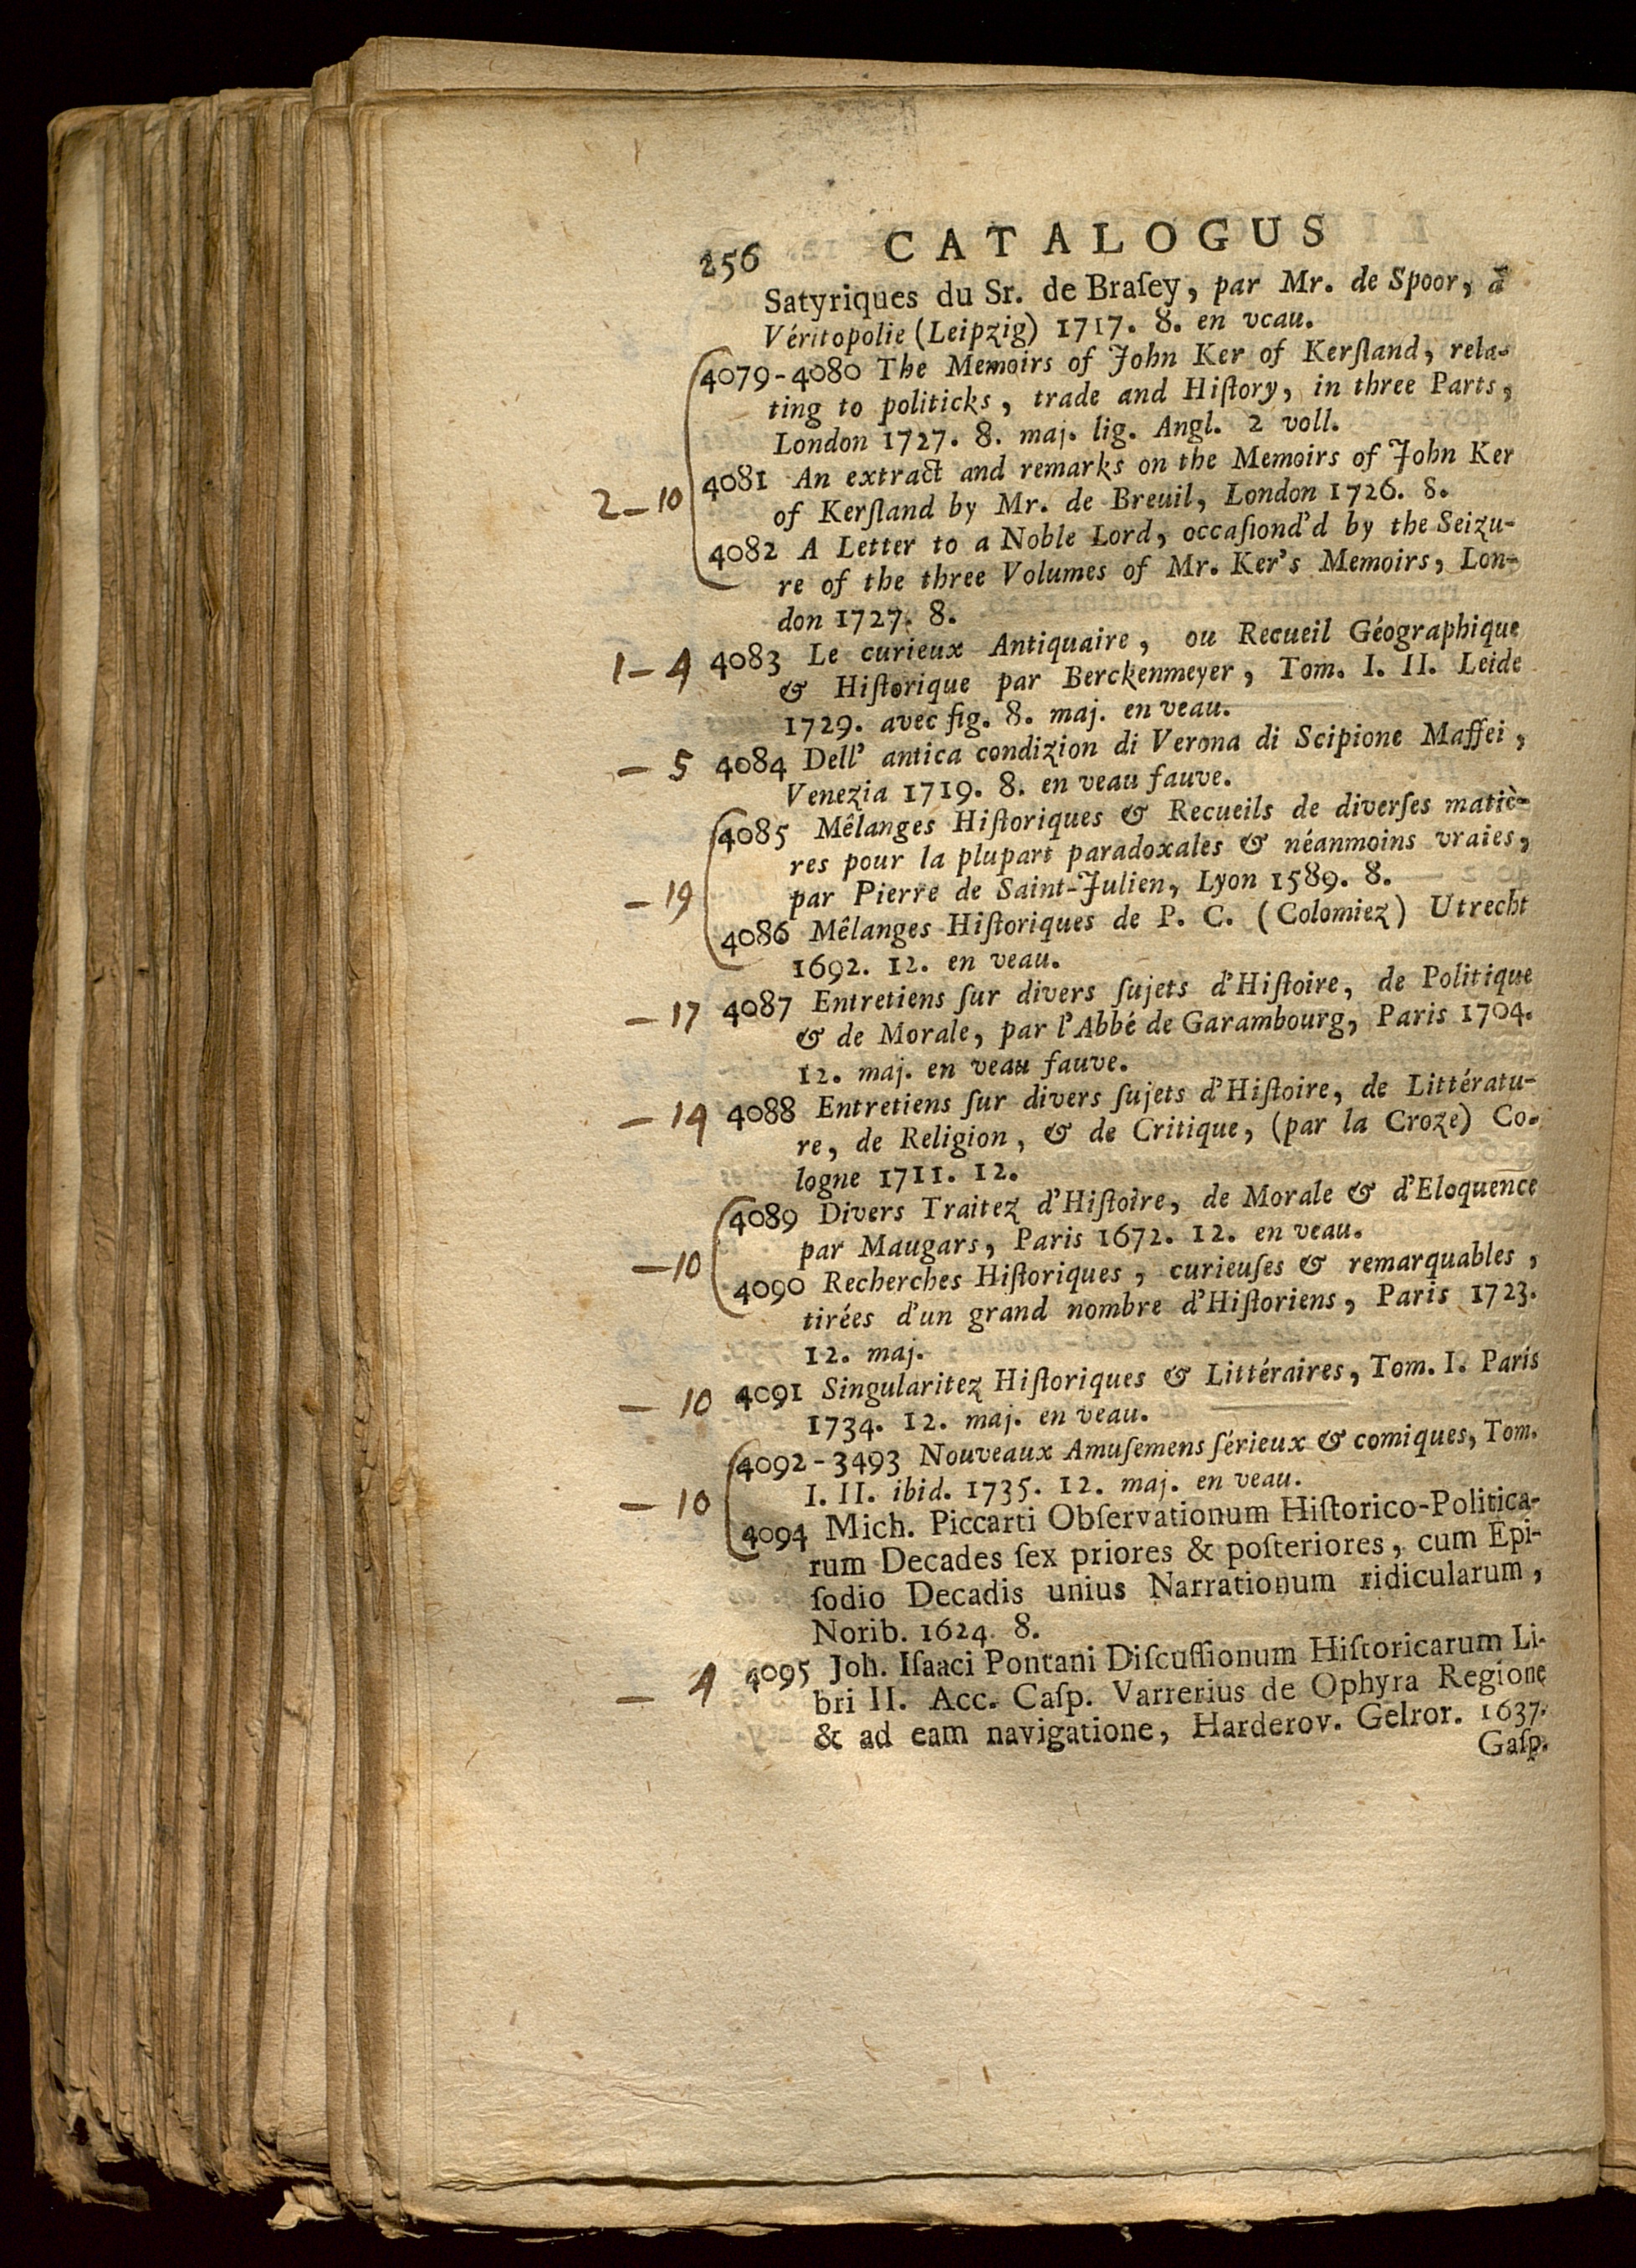 256 CATALOGUS
Satyriques du Sr. de Braſey, par Mr. de Spoor, à
Véritopolie (Leipzig) 1717. 8. en veau.
4079-4080 The Memoirs of John Ker of Kerſland, rela-
ting to politicks, trade and Hiſtory, in three Parts,
London 1727. 8. maj. lig. Angl. 2 voll.
4081 An extract and remarks on the Memoirs of John Ker
2-10
of Kerſland by Mr. de Breuil, London 1726. 8.
4082 A Letter to a Noble Lord, occaſiond'd by the Seizu-
re of the three Volumes of Mr. Ker's Memoirs, Lon-
don 1727. 8.
1-4 4083 Le curieux Antiquaire, ou Recueil Géographique
& Hiſtorique par Berckenmeyer, Tom. I. II. Leide
1729. avec fig. 8. maj. en veau.
-5 4084 Dell' antica condizion di Verona di Scipione Maffei,
Venezia 1719. 8. en veau fauve.
4085 Mêlanges Hiſtoriques & Recueils de diverſes matiè-
res pour la plupart paradoxales & néanmoins vraies,
-19 par Pierre de Saint-Julien, Lyon 1589. 8.
4086 Mêlanges Hiſtoriques de P. C. (Colomiez) Utrecht
1692. 12. en veau.
-17 4087 Entretiens ſur divers ſujets d'Hiſtoire, de Politique
& de Morale, par l'Abbé de Garambourg, Paris 1704.
12. maj. en veau fauve.
-14 4088 Entretiens ſur divers ſujets d'Hiſtoire, de Littératu-
re, de Religion, & de Critique, (par la Croze) Co-
logne 1711. 12.
4089 Divers Traitez d'Hiſtoire, de Morale & d'Eloquence
par Maugars, Paris 1672. 12. en veau.
-10
4090 Recherches Hiſtoriques, curieuſes & remarquables,
tirées d'un grand nombre d'Hiſtoriens, Paris 1723.
12. maj.
-10 4091 Singularitez Hiſtoriques & Littéraires, Tom. I. Paris
1734. 12. maj. en veau.
4092-3493 Nouveaux Amuſemens ſérieux & comiques, Tom.
-10 I. II. ibid. 1735. 12. maj. en veau.
4094 Mich. Piccarti Obſervationum Hiſtorico-Politica-
rum Decades ſex priores & poſteriores, cum Epi-
ſodio Decadis unius Narrationum ridicularum,
Norib. 1624. 8.
-4 4095 Joh. Iſaaci Pontani Diſcuſſionum Hiſtoricarum Li-
bri II. Acc. Caſp. Varrerius de Ophyra Regione
& ad eam navigatione, Harderov. Gelror. 1637.
Gaſp.